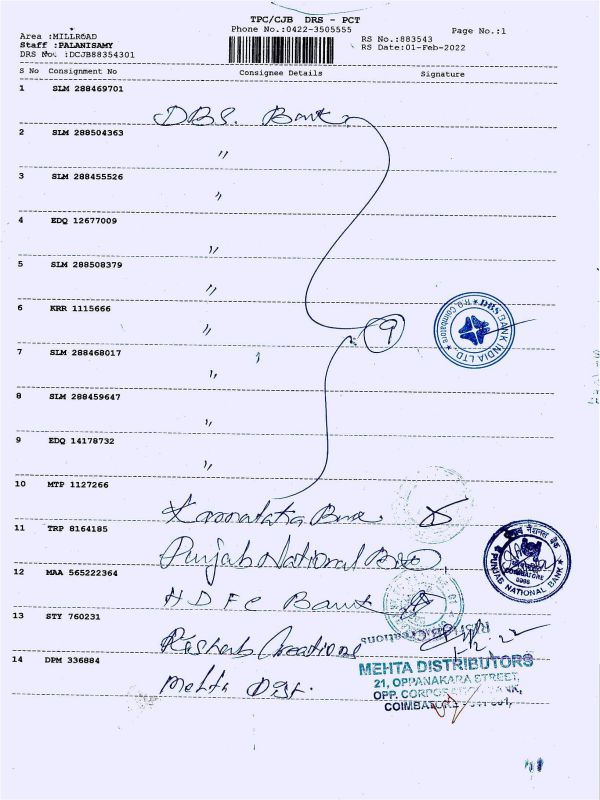 TPC/CJB DRS - PCT
Phone No.:0422-3505555
Page No.:1
Area :MILLROAD
RS No.:883543
Staff :PALANISAMY
RS Date:01-Feb-2022
DRS No. :DCJB88354301
S No Consignment No Consignee Details Signature
1 SLM 288469701
DBS. Bank
2 SLM 288504363
"
3 SLM 288455526
"
4 EDQ 12677009
"
5 SLM 288508379
"
6 KRR 1115666
" 9
DBS BANK INDIA LTD
7 SLM 288468017
"
8 SLM 288459647
"
9 EDQ 14178732
"
10 MTP 1127266
Karnataka Bank
11 TRP 8164185
Punjab National
पंजाब नैशनल बैंक
COIMBATORE
PUNJAB NATIONAL BANK
12 MAA 565222364
HDFC Bank
13 STY 760231
Rishab Creations
14 DPM 336884
Mehta Dist.
MEHTA DISTRIBUTORS
21, OPPANAKARA STREET,
OPP. BANK,